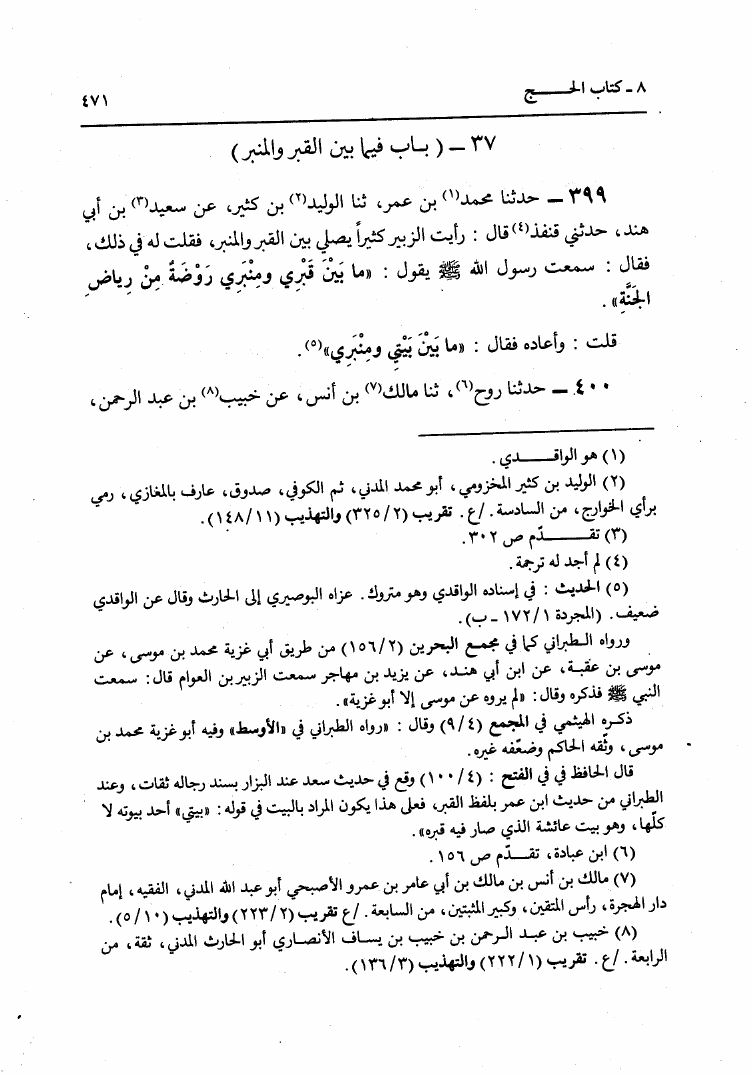 ٨ ـ كتاب الحــــــج
٤٧١
٣٧ ـ ( بـاب فيما بين القبر والمنبر )
٣٩٩ ـ حدثنا محمد(١) بن عمر، ثنا الوليد(٢) بن كثير، عن سعيد(٣) بن أبي
هند، حدثني قنفذ(٤) قال : رأيت الزبير كثيراً يصلي بين القبر والمنبر، فقلت له في ذلك،
فقال : سمعت رسول الله ﷺ يقول : «ما بَيْنَ قَبْرِي ومِنْبَرِي رَوْضَةٌ مِنْ رِياضِ
الجَنَّةِ» .
قلت : وأعاده فقال : «ما بَيْنَ بَيْتِي ومِنْبَرِي»(٥).
٤٠٠ ـ حدثنا روح(٦)، ثنا مالك(٧) بن أنس، عن خبيب(٨) بن عبد الرحمن،
(١) هو الواقـــــدي .
(٢) الوليد بن كثير المخزومي، أبو محمد المدني، ثم الكوفي، صدوق، عارف بالمغازي، رمي
برأي الخوارج، من السادسة . /ع . تقريب (٣٢٥/٢) والتهذيب (١٤٨/١١).
(٣) تقـــــــدّم ص ٣٠٢.
(٤) لم أجد له ترجمة.
(٥) الحديث : في إسناده الواقدي وهو متروك. عزاه البوصيري إلى الحارث وقال عن الواقدي
ضعيف. (المجردة ١٧٢/١ ـ ب).
ورواه الـطبراني كما في مجمع البحرين (١٥٦/٢) من طريق أبي غزية محمد بن موسى، عن
موسى بن عقبـة، عن ابن أبي هنـد، عن يزيد بن مهاجر سمعت الزبير بن العوام قال: سمعت
النبي ﷺ فذكره وقال: «لم يروه عن موسى إلا أبو غزية».
ذكـره الهيثمي في المجمع (٩/٤) وقال : «رواه الطبراني في «الأوسط» وفيه أبو غزية محمد بن
موسى، وثّقه الحاكم وضعّفه غيره.
قال الحافظ في في الفتح : (١٠٠/٤) وقع في حديث سعد عند البزار بسند رجاله ثقات، وعند
الطبراني من حديث ابن عمر بلفظ القبر، فعلى هذا يكون المراد بالبيت في قوله: «بيتي» أحد بيوته لا
كلّها، وهو بيت عائشة الذي صار فيه قبره».
(٦) ابن عبادة، تقـــدّم ص ١٥٦.
(٧) مالك بن أنس بن مالك بن أبي عامر بن عمرو الأصبحي أبو عبد الله المدني، الفقيه، إمام
دار الهجرة، رأس المتقين، وكبير المثبتين، من السابعة. /ع تقريب (٢٢٣/٢) والتهذيب (٥/١٠).
(٨) خبيب بن عبـد الـرحمن بن خبيب بن يسـاف الأنصـاري أبو الحارث المدني، ثقة، من
الرابعة. /ع. تقريب (٢٢٢/١) والتهذيب (١٣٦/٣).